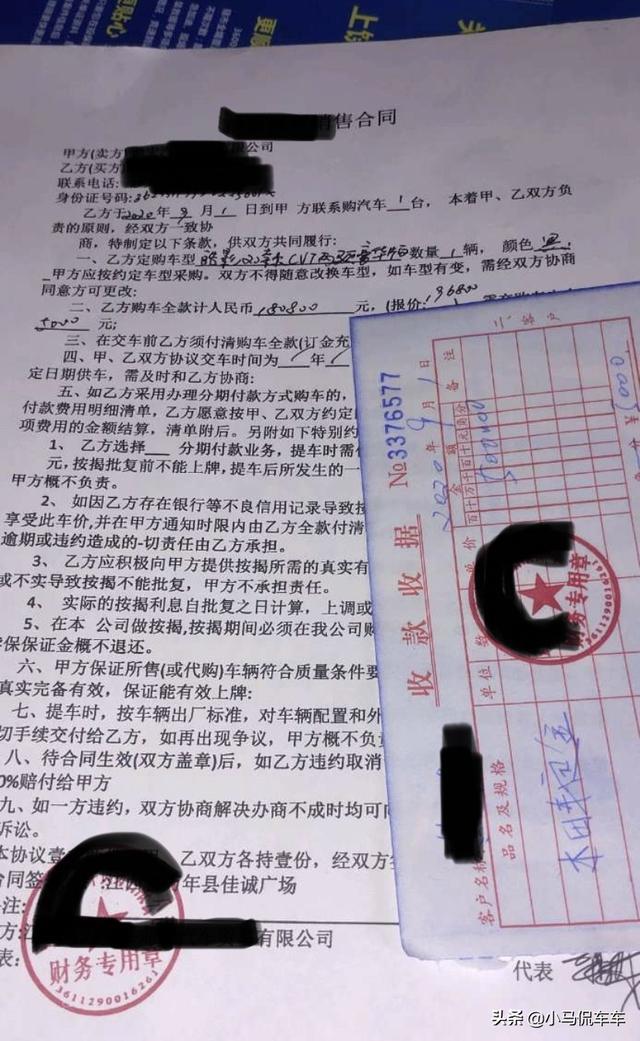 售合同
甲方(卖方
公司
乙方(买方
联系电话:
身份证号码:
乙方于2020年9月1日到甲 方联系购汽车1台, 本着甲、乙双方负
责的原则,经双方一致协
商,特制定以下条款,供双方共同履行:
一、乙方定购车型 CVT 数量1辆, 颜色
甲方应按约定车型采购。双方不得随意改换车型,如车型有变,需经双方协商
同意方可更改:
二、乙方购车全款计人民币 180800 元,(报价: 19680
5000 元;
三、在交车前乙方须付清购车全款(订金充
四、甲、乙双方协议交车时间为 年
定日期供车,需及时和乙方协商:
五、如乙方采用办理分期付款方式购车的,
付款费用明细清单,乙方愿意按甲、乙双方约定
项费用的金额结算,清单附后。另附如下特别约
1、 乙方选择 分期付款业务,提车时需
元,按揭批复前不能上牌,提车后所发生的一
甲方概不负责。
2、 如因乙方存在银行等不良信用记录导致按
享受此车价,并在甲方通知时限内由乙方全款付清
逾期或违约造成的-切责任由乙方承担。
3、 乙方应积极向甲方提供按揭所需的真实有
或不实导致按揭不能批复,甲方不承担责任。
4、 实际的按揭利息自批复之日计算,上调或
5、在本 公司做按揭,按揭期间必须在我公司购
保保证金概不退还。
六、甲方保证所售(或代购)车辆符合质量条件要
真实完备有效,保证能有效上牌:
七、提车时,按车辆出厂标准,对车辆配置和外
切手续交付给乙方,如再出现争议,甲方概不负责
八、待合同生效(双方盖章)后,如乙方违约取消
0%赔付给甲方
九、如一方违约,双方协商解决办商不成时均可向
诉讼。
本协议壹 乙双方各持壹份,经双方
合同签 年县佳诚广场
注:
方: 有限公司
表:
代表
财务专用章
3611290016261
收款收据
№3376577
2020年9月1日
二 客户
客户名称
品名及规格
单位
数
单价
金额
百十万千百十元角分
备注
本田车定金
5000
财务专用章
头条 @小马侃车车